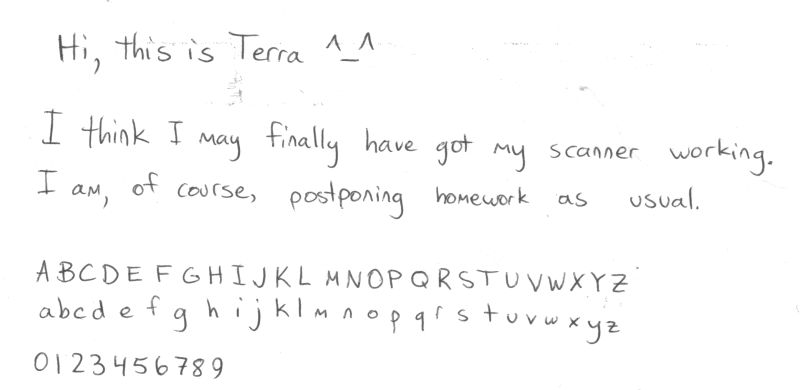 Hi, this is Terra ^_^
I think I may finally have got my scanner working.
I am, of course, postponing homework as usual.
A B C D E F G H I J K L M N O P Q R S T U V W X Y Z
a b c d e f g h i j k l m n o p q r s t u v w x y z
0 1 2 3 4 5 6 7 8 9